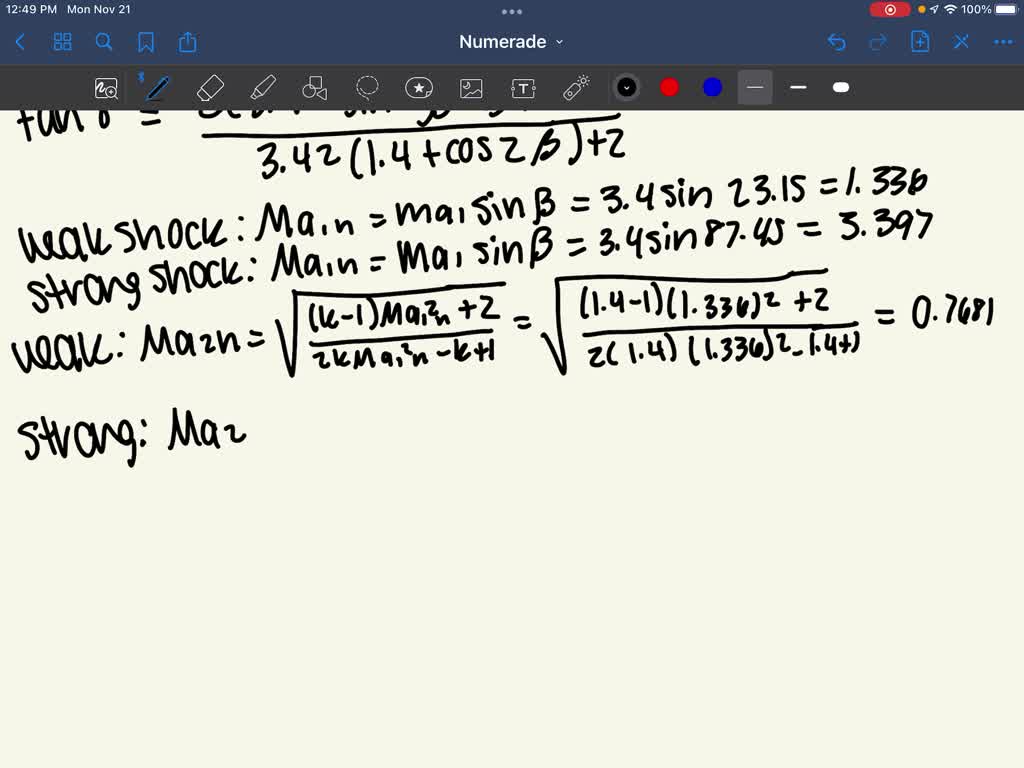 12:49 PM Mon Nov 21
100%
Numerade
tan
3.42(1.4+cos2β)+2
weak shock: Ma1n = ma1 sinβ = 3.4 sin 23.15 = 1.336
strong shock: Ma1n = Ma1 sinβ = 3.4 sin 87.45 = 3.397
weak: Ma2n = √((k-1)Ma1²n+2 / 2kMa1²n-k+1) = √((1.4-1)(1.336)²+2 / 2(1.4)(1.336)²-1.4+1) = 0.7681
strong: Ma2